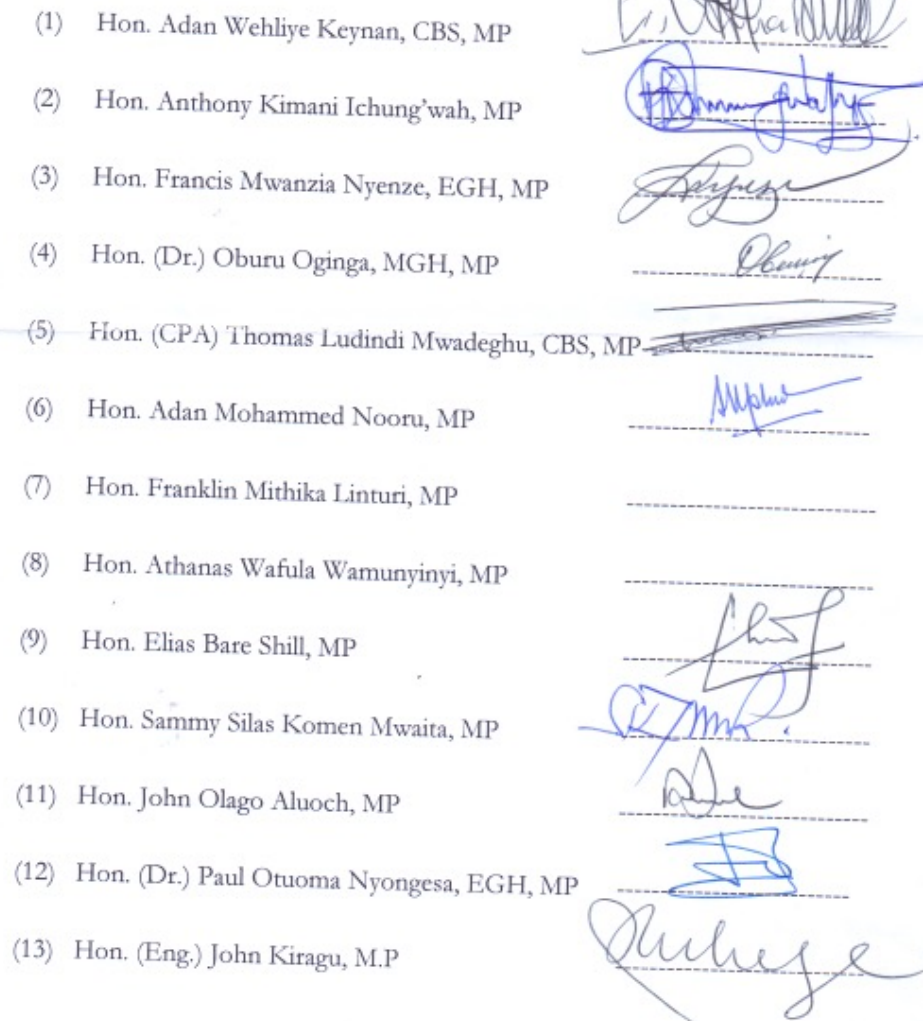 (1) Hon. Adan Wehliye Keynan, CBS, MP
(2) Hon. Anthony Kimani Ichung'wah, MP
(3) Hon. Francis Mwanzia Nyenze, EGH, MP
(4) Hon. (Dr.) Oburu Oginga, MGH, MP
(5) Hon. (CPA) Thomas Ludindi Mwadeghu, CBS, MP
(6) Hon. Adan Mohammed Nooru, MP
(7) Hon. Franklin Mithika Linturi, MP
(8) Hon. Athanas Wafula Wamunyinyi, MP
(9) Hon. Elias Bare Shill, MP
(10) Hon. Sammy Silas Komen Mwaita, MP
(11) Hon. John Olago Aluoch, MP
(12) Hon. (Dr.) Paul Otuoma Nyongesa, EGH, MP
(13) Hon. (Eng.) John Kiragu, M.P